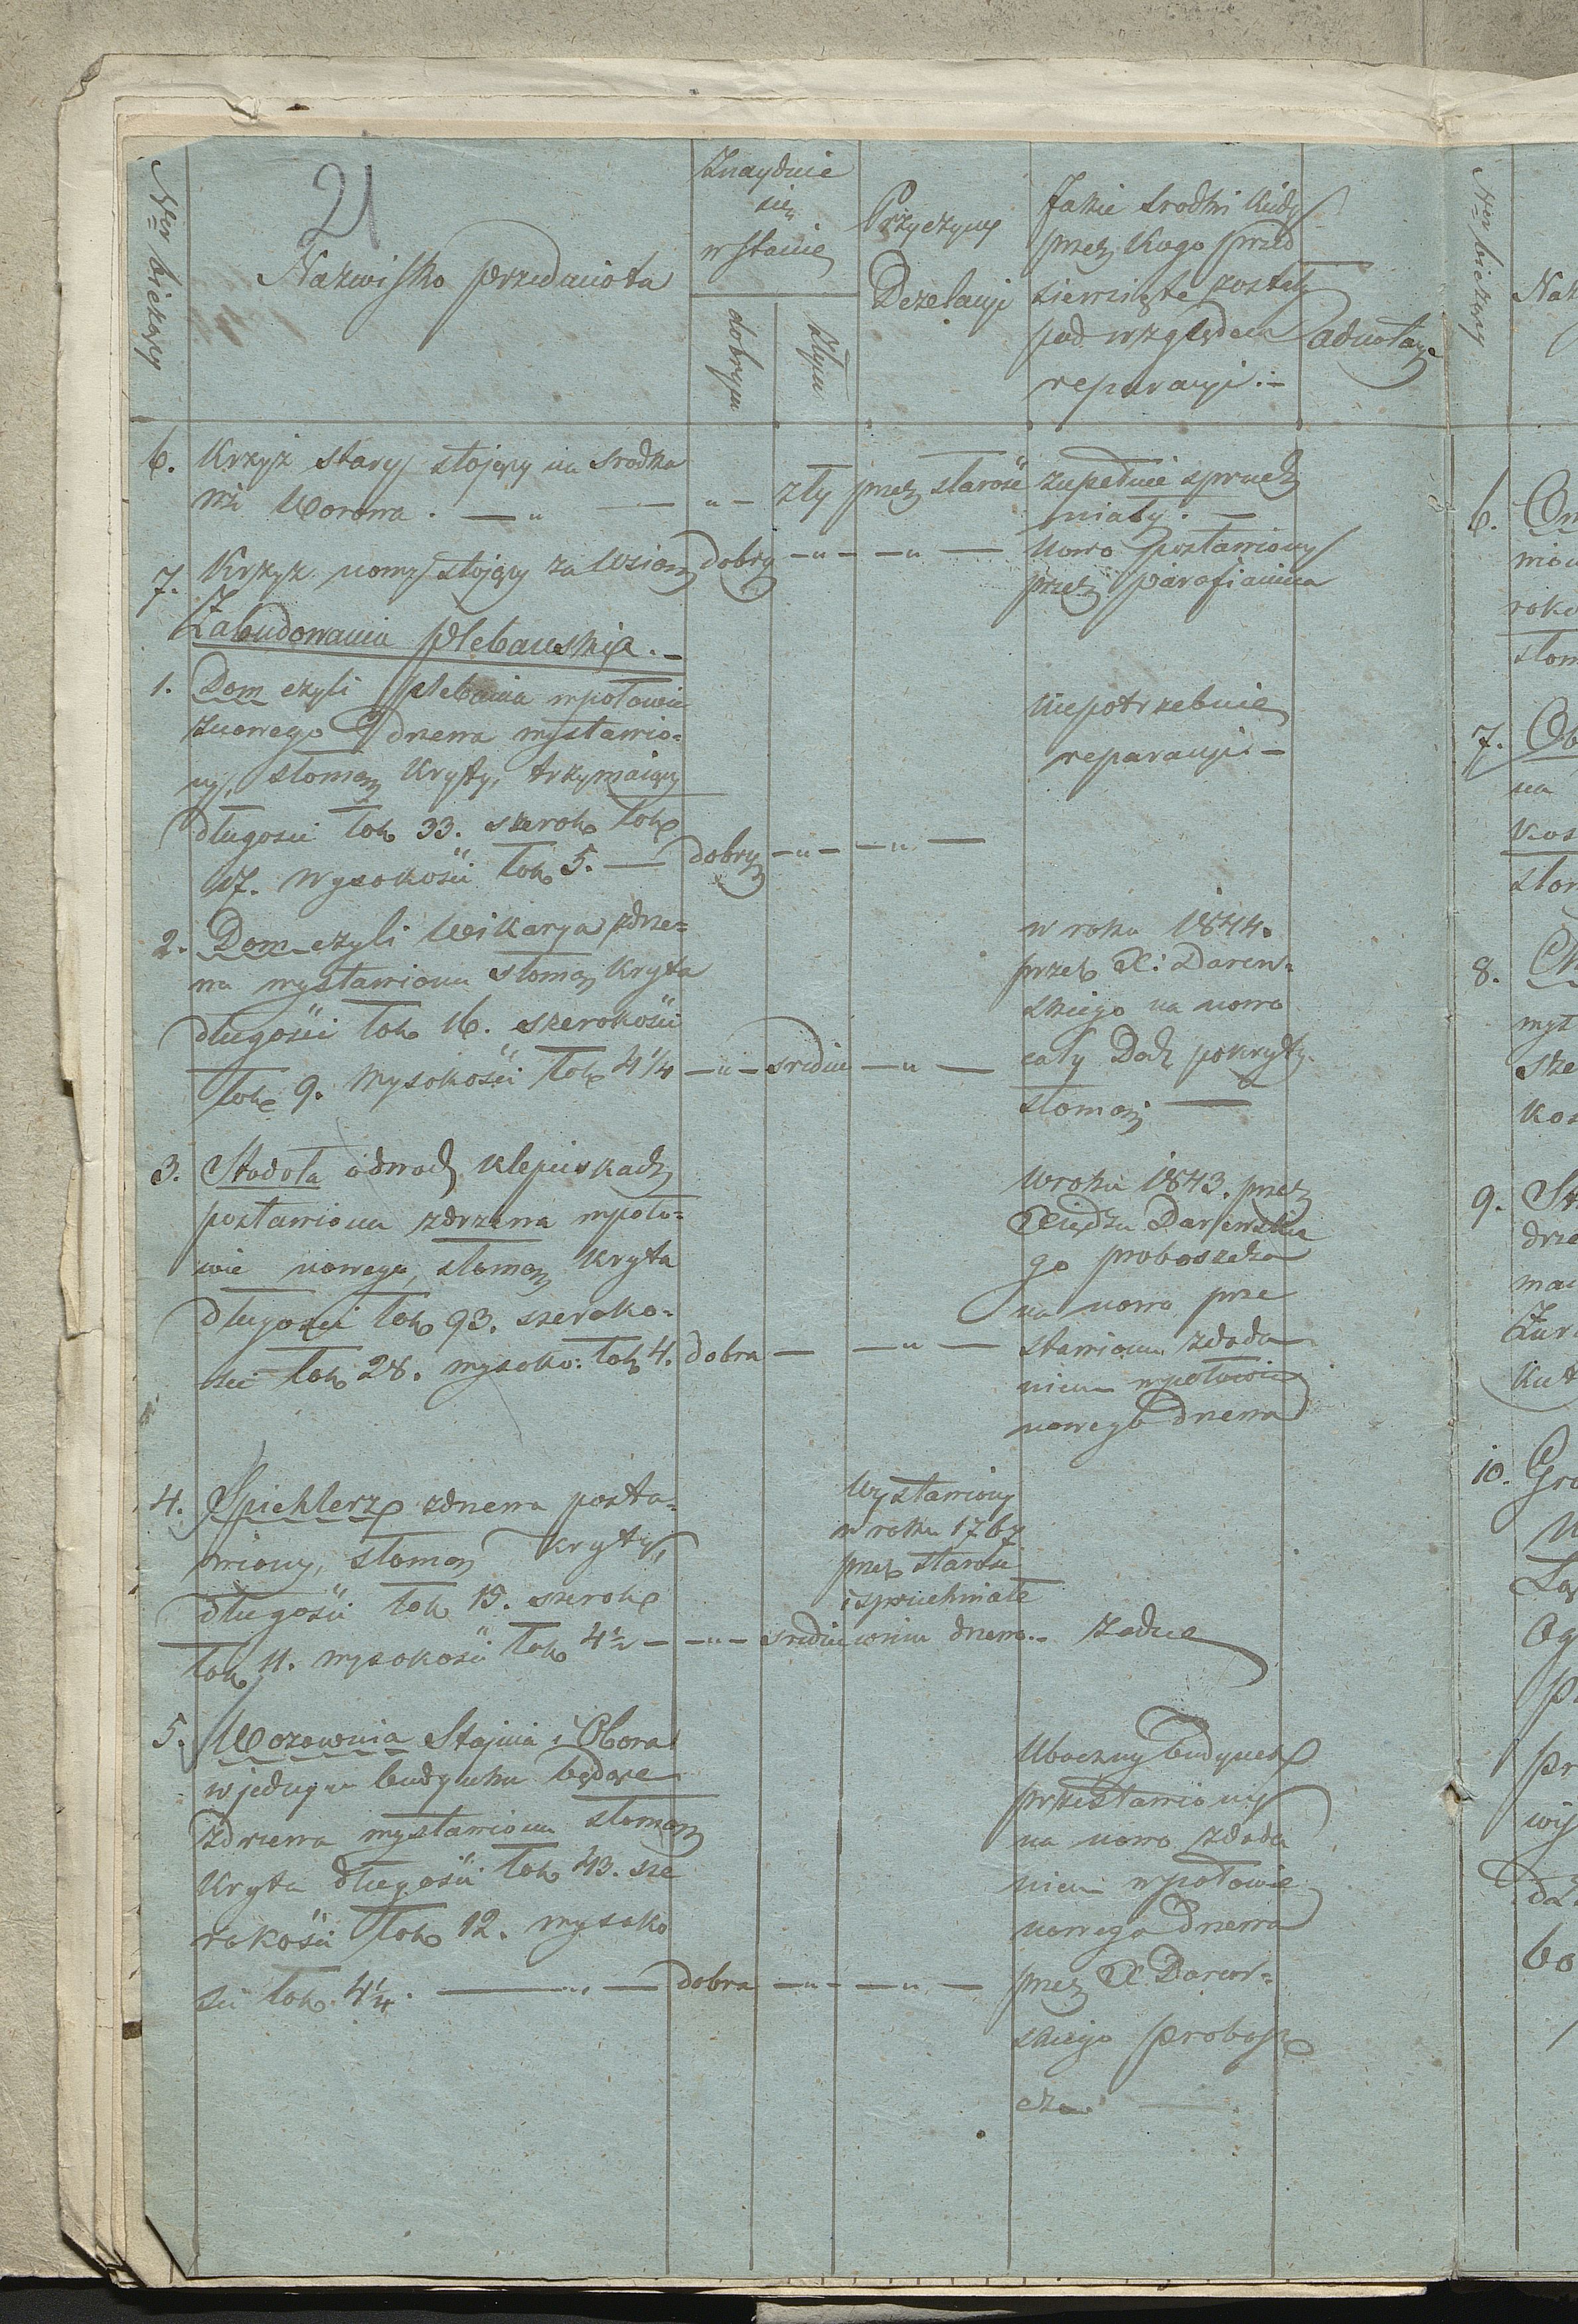 21
Ner bieżący
Nazwisko przedmiota
Znayduie
się
w stanie
dobrym
złym
Przyczyny
Dezelacyi
Jakie srodki kiedy
przez kogo przed
siewzięte zostały
pod względem
reparacyi :-
adnotacye
6. Krzyż stary stojący na srodku
wsi Worowa . — " — " — zły przez starość zupełnie spruch
niały . —
7. Krzyż nowy stojący za wsią dobry — " — — " — nowo postawiony
przez parafianina
Zabudowania plebanskie . –
1. Dom czyli plebania wpołowie
znowego drzewa wystawio=
ny, słomą kryty, trzymaiący
długosci łok 33. szerok łok
17. wysokości łok 5. — dobry — " — — " —
niepotrzebuie
reparacyi –
2. Dom czyli Wikarya zdrze=
wa wystawiona słomą kryta
długości łok 16. szerokości
łok 9. wysokości łok 4 1/4 — " — srednie — " —
w roku 1844.
przez X: Darew=
skiego na nowo
cały Dach pokryty
słomą —
3. Stodoła o dwóch klepiskach
postawiona zdrzewa wpoło=
wie nowego, słomą kryta
długosci łok 93. szeroko=
sci łok 28. wysoko: łok 4. dobra — — " —
w roku 1843. przez
Xiędza Darewskie
go proboszcza
na nowo prze
stawiona zdoda
niem wpołowie
nowego drzewa
4. Spichlerz zdrzewa posta=
wiony, słomą kryty,
długości łok 15. szerok
łok 11. wysokości łok 4 1/2 — — " — srednie
Wystawiony
w roku 1767
przez starość
i spruchniałe
drzewo. – żadne
5. Wozownia Stajnia i Obora
w jednym budynku będące
zdrzewa wystawiona słomą
kryta długości łok 43. sze
rokości łok 12. wysoko
sci łok 4 1/4 . — " — dobra — " — — " —
Uboczny budynek
przestawiony
na nowo zdoda
niem wpołowie
nowego drzewa
przez X Darew=
skiego probosz
cza . —
Ner bieżący
6.
7.
8.
9.
10.